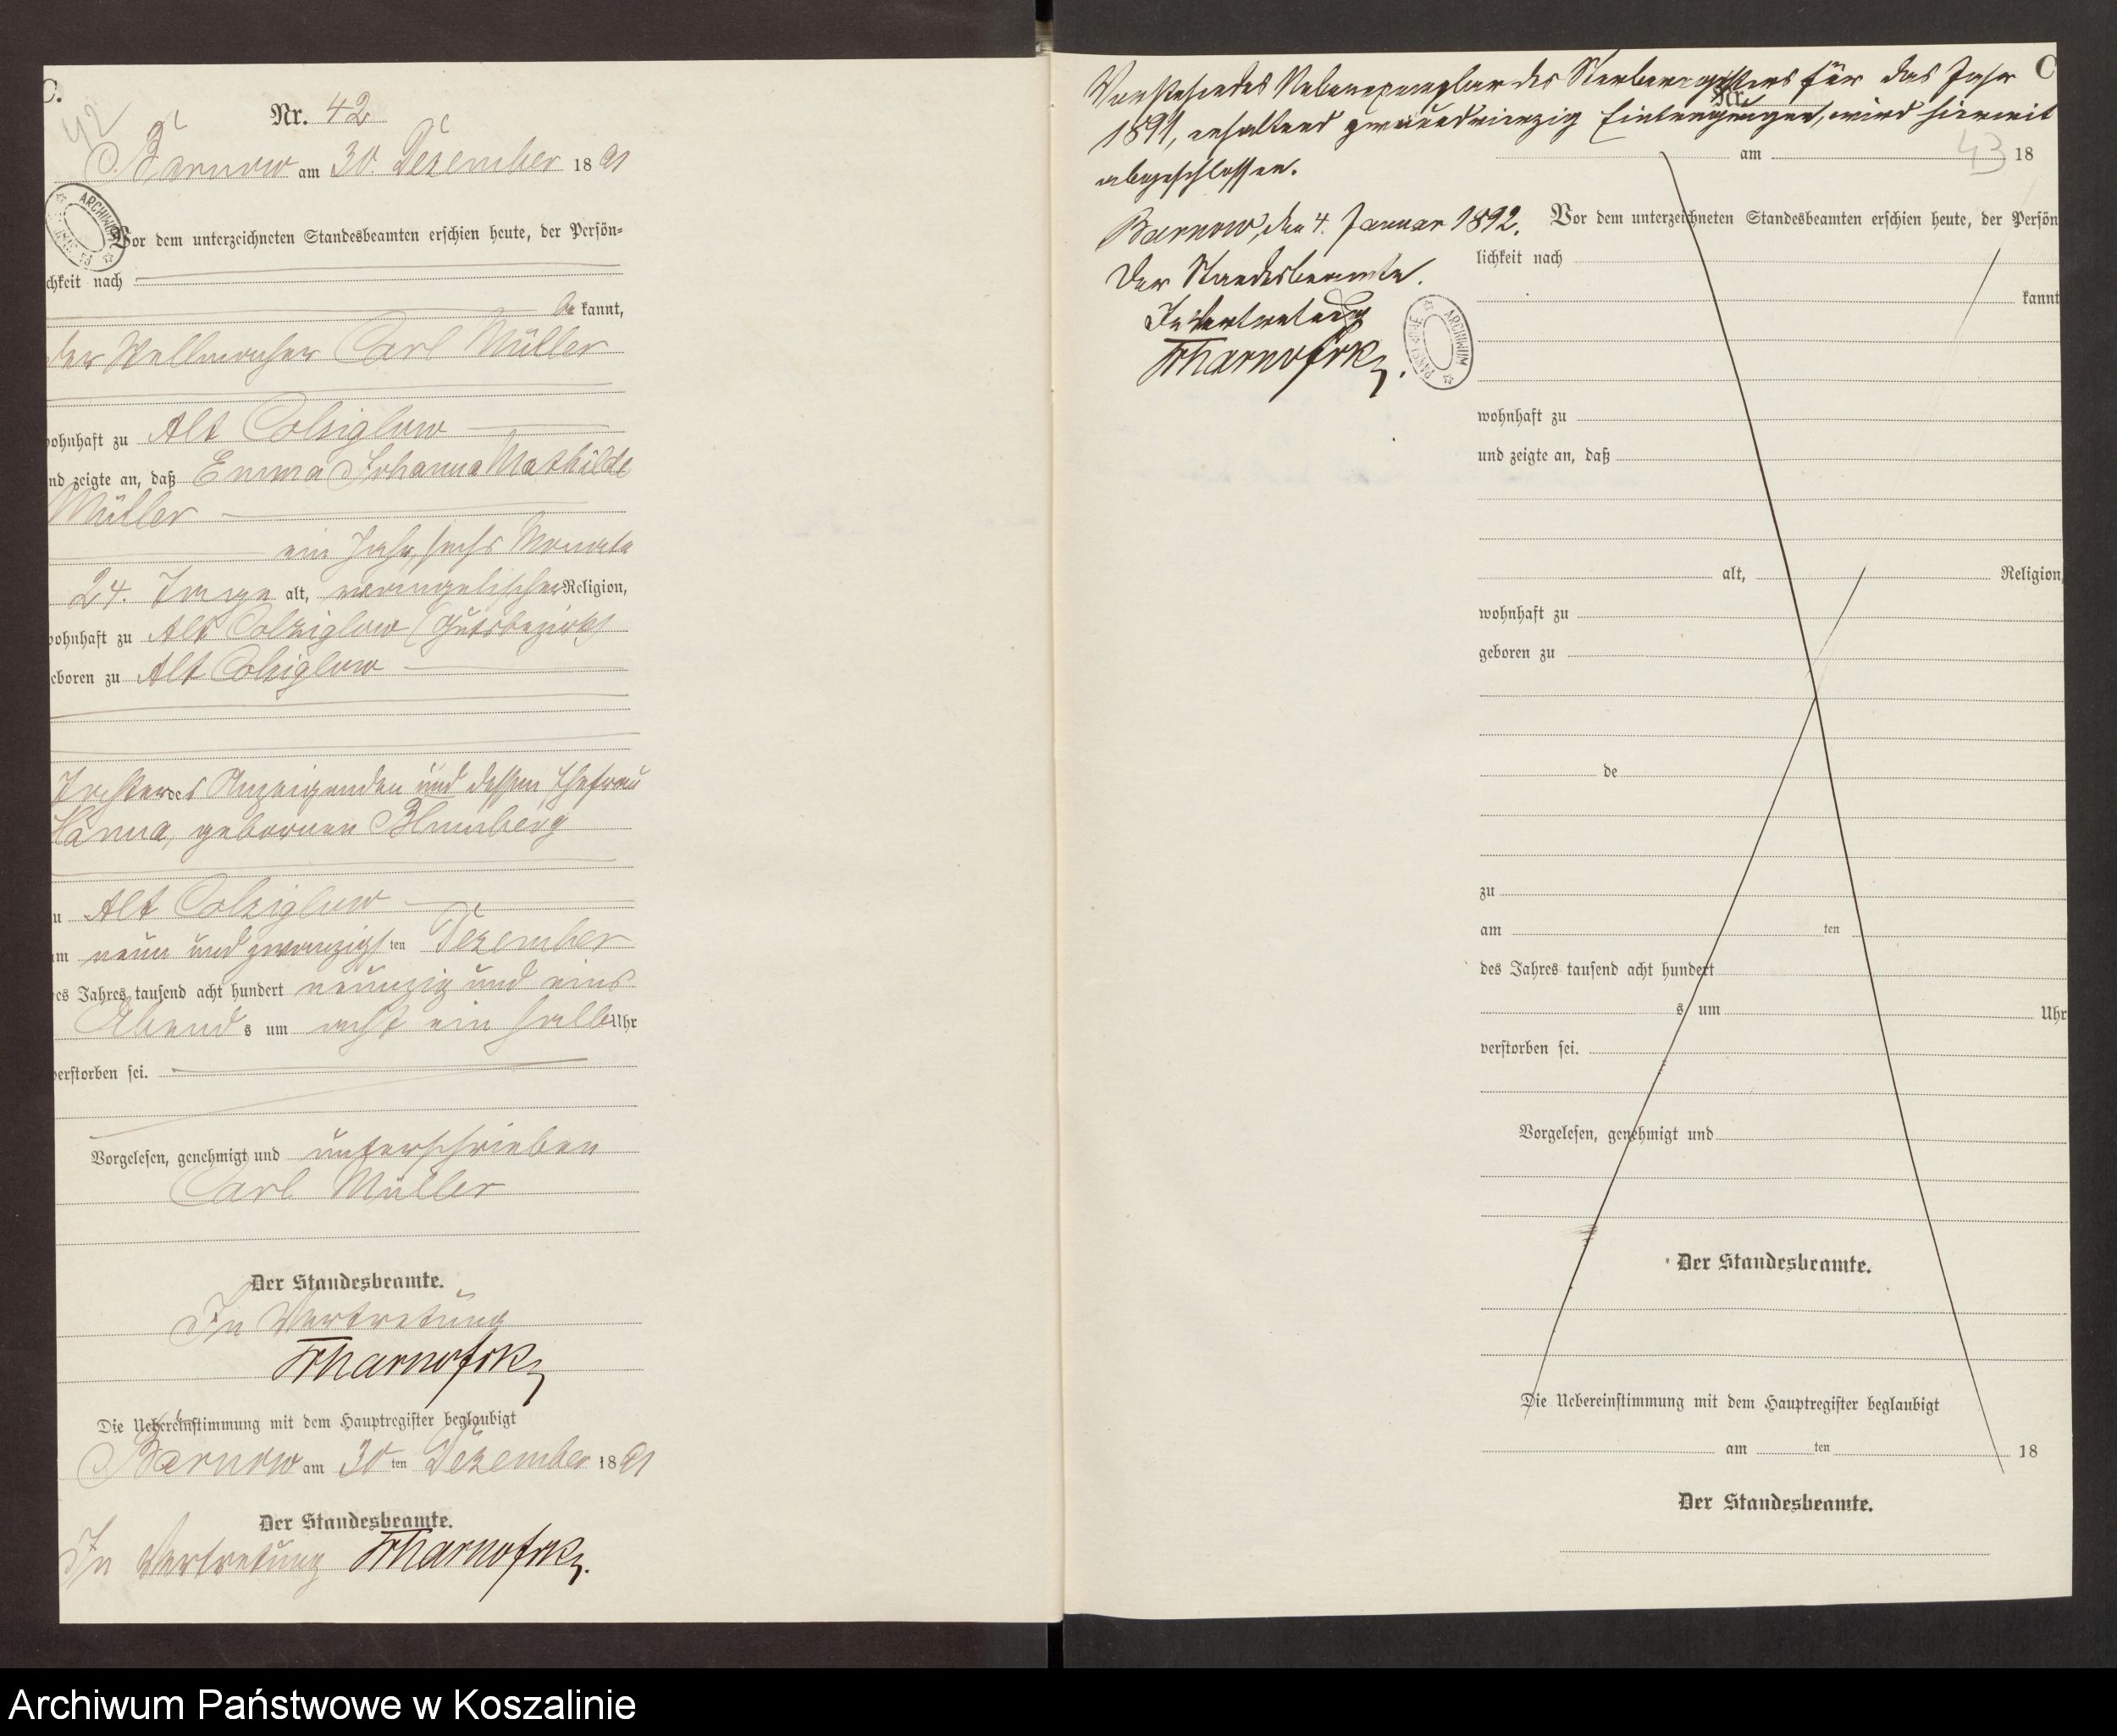 C.
42
Nr. 42
Barnow am 30. Dezember 1891
Vor dem unterzeichneten Standesbeamten erschien heute, der Persön-
chkeit nach
be kannt,
der Wallmacher Carl Müller
wohnhaft zu Alt Colziglow
nd zeigte an, daß Emma Johanna Mathilde
Müller
ein Jahr, sechs Monate
24. Tage alt, evangelischer Religion,
wohnhaft zu Alt Colziglow (Gutsbezirk)
eboren zu Alt Colziglow
Tochter des Anzeigenden und dessen Ehefrau
Hanna, geborenen Blumberg
u Alt Colziglow
am neun und zwanzigsten Dezember
es Jahres tausend acht hundert neunzig und eins
Abends um acht ein halb Uhr
verstorben sei.
Vorgelesen, genehmigt und unterschrieben
Carl Müller
Der Standesbeamte.
In Vertretung
Die Uebereinstimmung mit dem Hauptregister beglaubigt
Barnow am 30ten Dezember 1891
Der Standesbeamte.
In Vertretung
C
Vorstehendes Nebenexemplar des Sterberegisters für das Jahr
1891, enthaltend zweiundvierzig Eintragungen, wird hiermit
abgeschlossen.
Barnow, den 4. Januar 1892.
Der Standesbeamte.
In Vertretung
ARCHIWUM
Nr.
43
am 18
Vor dem unterzeichneten Standesbeamten erschien heute, der Persön
lichkeit nach
kannt
wohnhaft zu
und zeigte an, daß
alt, Religion,
wohnhaft zu
geboren zu
de
zu
am ten
des Jahres tausend acht hundert
s um Uhr
verstorben sei.
Vorgelesen, genehmigt und
Der Standesbeamte.
Die Uebereinstimmung mit dem Hauptregister beglaubigt
am ten 18
Der Standesbeamte.
Archiwum Państwowe w Koszalinie